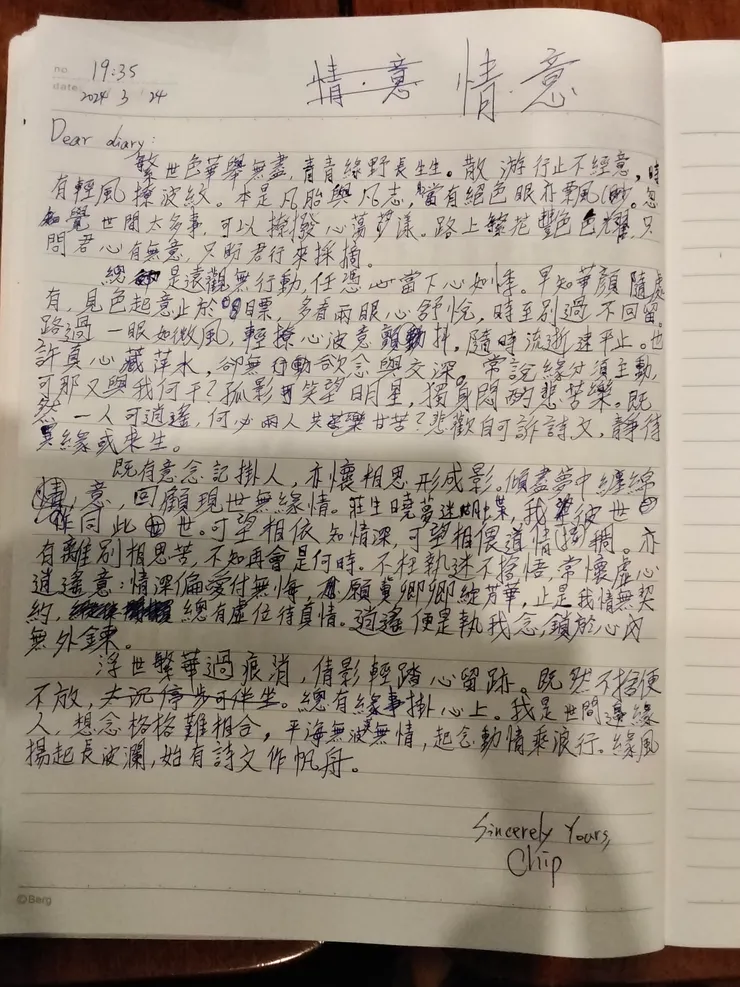 no.
19:35
date
2024 3 24
情·意 情·意
Dear diary:
繁世色華舉無盡,青青綠野長生生。散游行止不經意,時
有輕風撩波紋。本是凡胎與凡志,當有絕色眼亦飄。忽
覺世間太多事,可以撩撥心蕩漾。路上繁花豐色耀,只
問君心有無意,只盼君行來採摘。
總是遠觀無行動,任憑當下心如悸。早知華顏隨處
有,見色起意止於目標,多看兩眼心舒悅,時至別過不回留。
路過一眼如微風,輕撩心波意顫抖,隨時流逝速平止。也
許真心藏萍水,卻無行動欲念與交深。常說緣分須主動,
可那又與我何干?孤影笑望明星,獨身悶酌悲苦樂。既
然一人可逍遙,何必兩人共甘苦?悲歡自可訴詩文,靜待
異緣或來生。
既有意念記掛人,亦懷相思形成影。傾盡夢中纏綿
情,意,回顧現世無緣情。莊生曉夢迷蝴蝶,我彼世
作同此世。可望相依知情深,可望相偎道情稠。亦
有離別相思苦,不知再會是何時。不枉執迷不捨悟,常懷虛心
逍遙意:情深偏愛付無悔,願冀卿卿綻芳華,止是我情無契
約,總有虛位待真情。逍遙便是執我念,鎖於心內
無外鍊。
浮世繁華過痕消,倩影輕踏心留跡。既然不捨便
不放,大況停步可伴坐。總有緣事掛心上。我是世間邊緣
人,想念格格難相合,平海無波無情,起念動情乘浪行。緣風
揚起長波瀾,始有詩文作帆舟。
Sincerely Yours,
Chip
©Berg